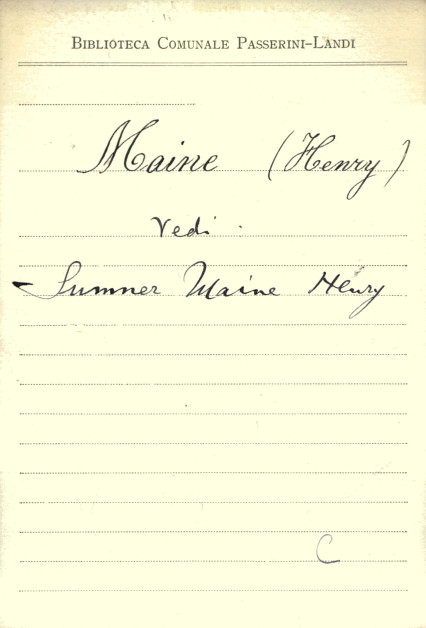 BIBLIOTECA COMUNALE PASSERINI-LANDI
Maine (Henry)
Vedi
Sumner Maine Henry
C